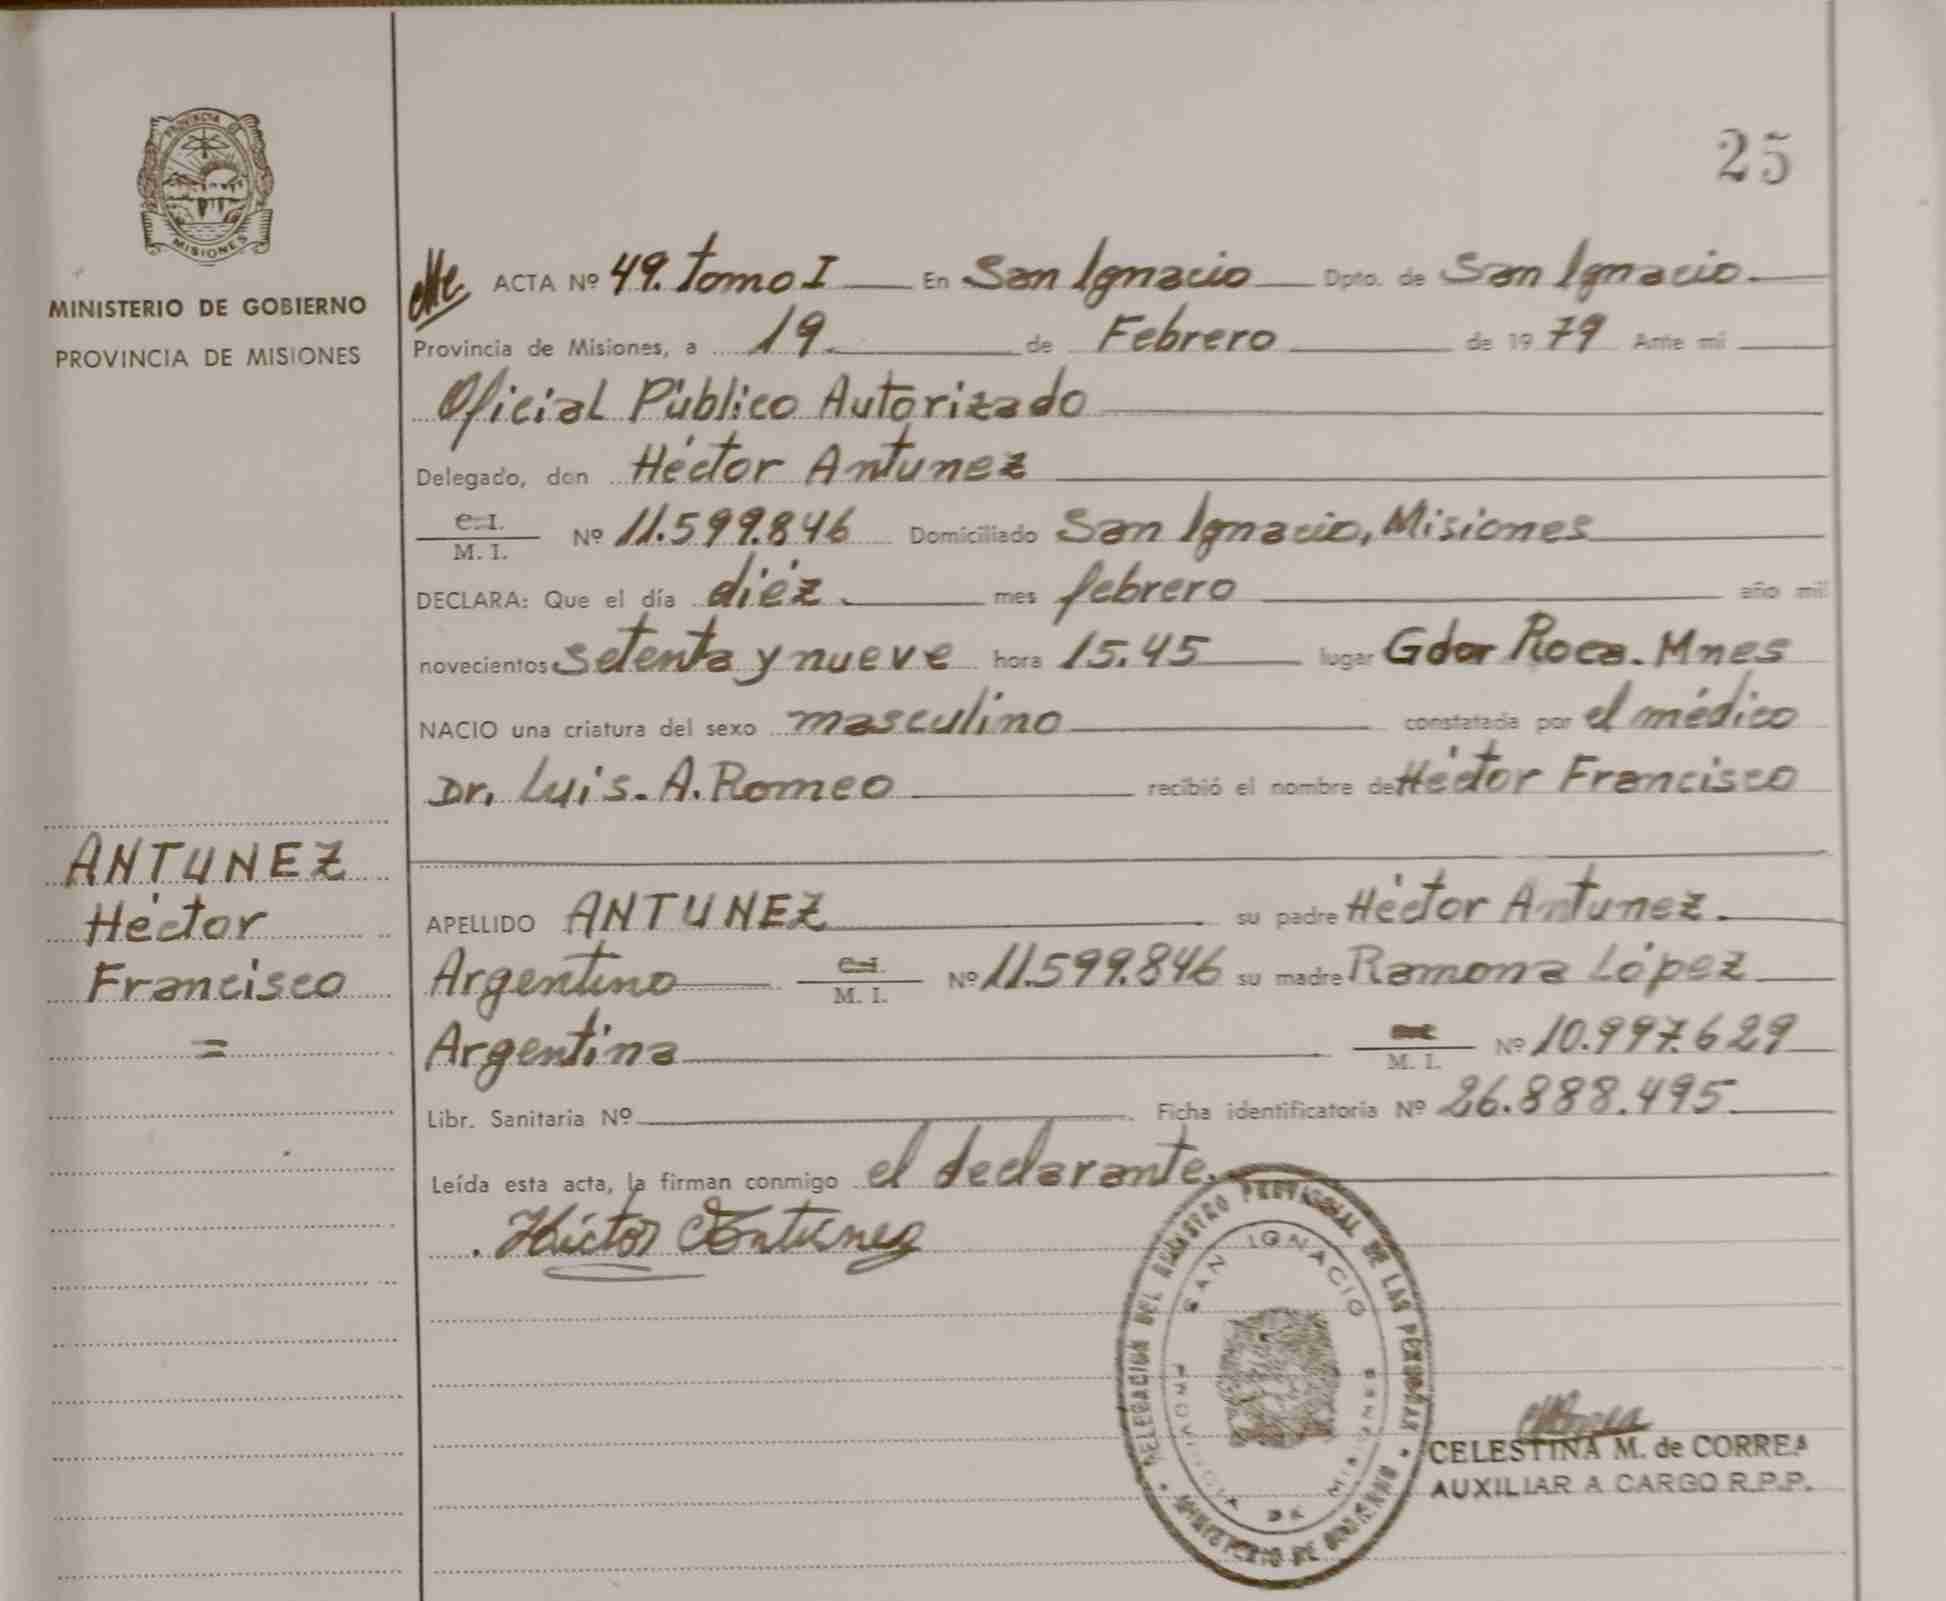 PROVINCIA DE
MISIONES
MINISTERIO DE GOBIERNO
PROVINCIA DE MISIONES
ANTUNEZ
Héctor
Francisco
=
25
ACTA Nº 49. Tomo I En San Ignacio Dpto. de San Ignacio.
Provincia de Misiones, a 19 de Febrero de 1979 Ante mí
Oficial Público Autorizado
Delegado, don Héctor Antunez
C. I.
M. I. Nº 11.599.846 Domiciliado San Ignacio, Misiones
DECLARA: Que el día diéz mes febrero año mil
novecientos setenta y nueve hora 15.45 lugar Gdor Roca. Mnes
NACIO una criatura del sexo masculino constatada por el médico
Dr. Luis. A. Romeo recibió el nombre de Héctor Francisco
APELLIDO ANTUNEZ su padre Héctor Antunez.
Argentino C. I. M. I. Nº 11.599.846 su madre Ramona López
Argentina M. I. Nº 10.997.629
Libr. Sanitaria Nº Ficha identificatoria Nº 26.888.495
Leída esta acta, la firman conmigo el declarante.
Héctor Antunez
DELEGACION DEL REGISTRO PROVINCIAL DE LAS PERSONAS
SAN IGNACIO
PROVINCIA DE MISIONES
MINISTERIO DE GOBIERNO
CELESTINA M. de CORREA
AUXILIAR A CARGO R.P.P.